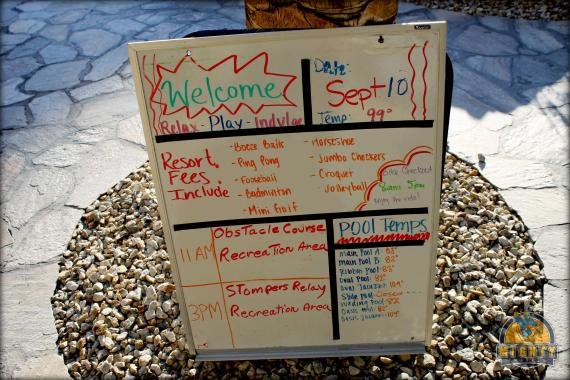 Welcome
Relax - Play - Indulge
Date:
Sept 10
Temp: 99°
Resort
Fees
Include
- Bocce Balls
- Ping Pong
- Foosball
- Badminton
- Mini Golf
- Horseshoe
- Jumbo Checkers
- Croquet
- Volleyball
Bike Checkout
5pm
enjoy the ride!
11AM
Obstacle Course
Recreation Area
3PM
Stompers Relay
Recreation Area
Pool Temps
Main Pool A: 83°
Main Pool B: 82°
Ribbon Pool: 82°
Oval Pool: 82°
Oval Jacuzzi: 104°
Slide Pool: Closed
Wading Pool: 82°
MIGHTY